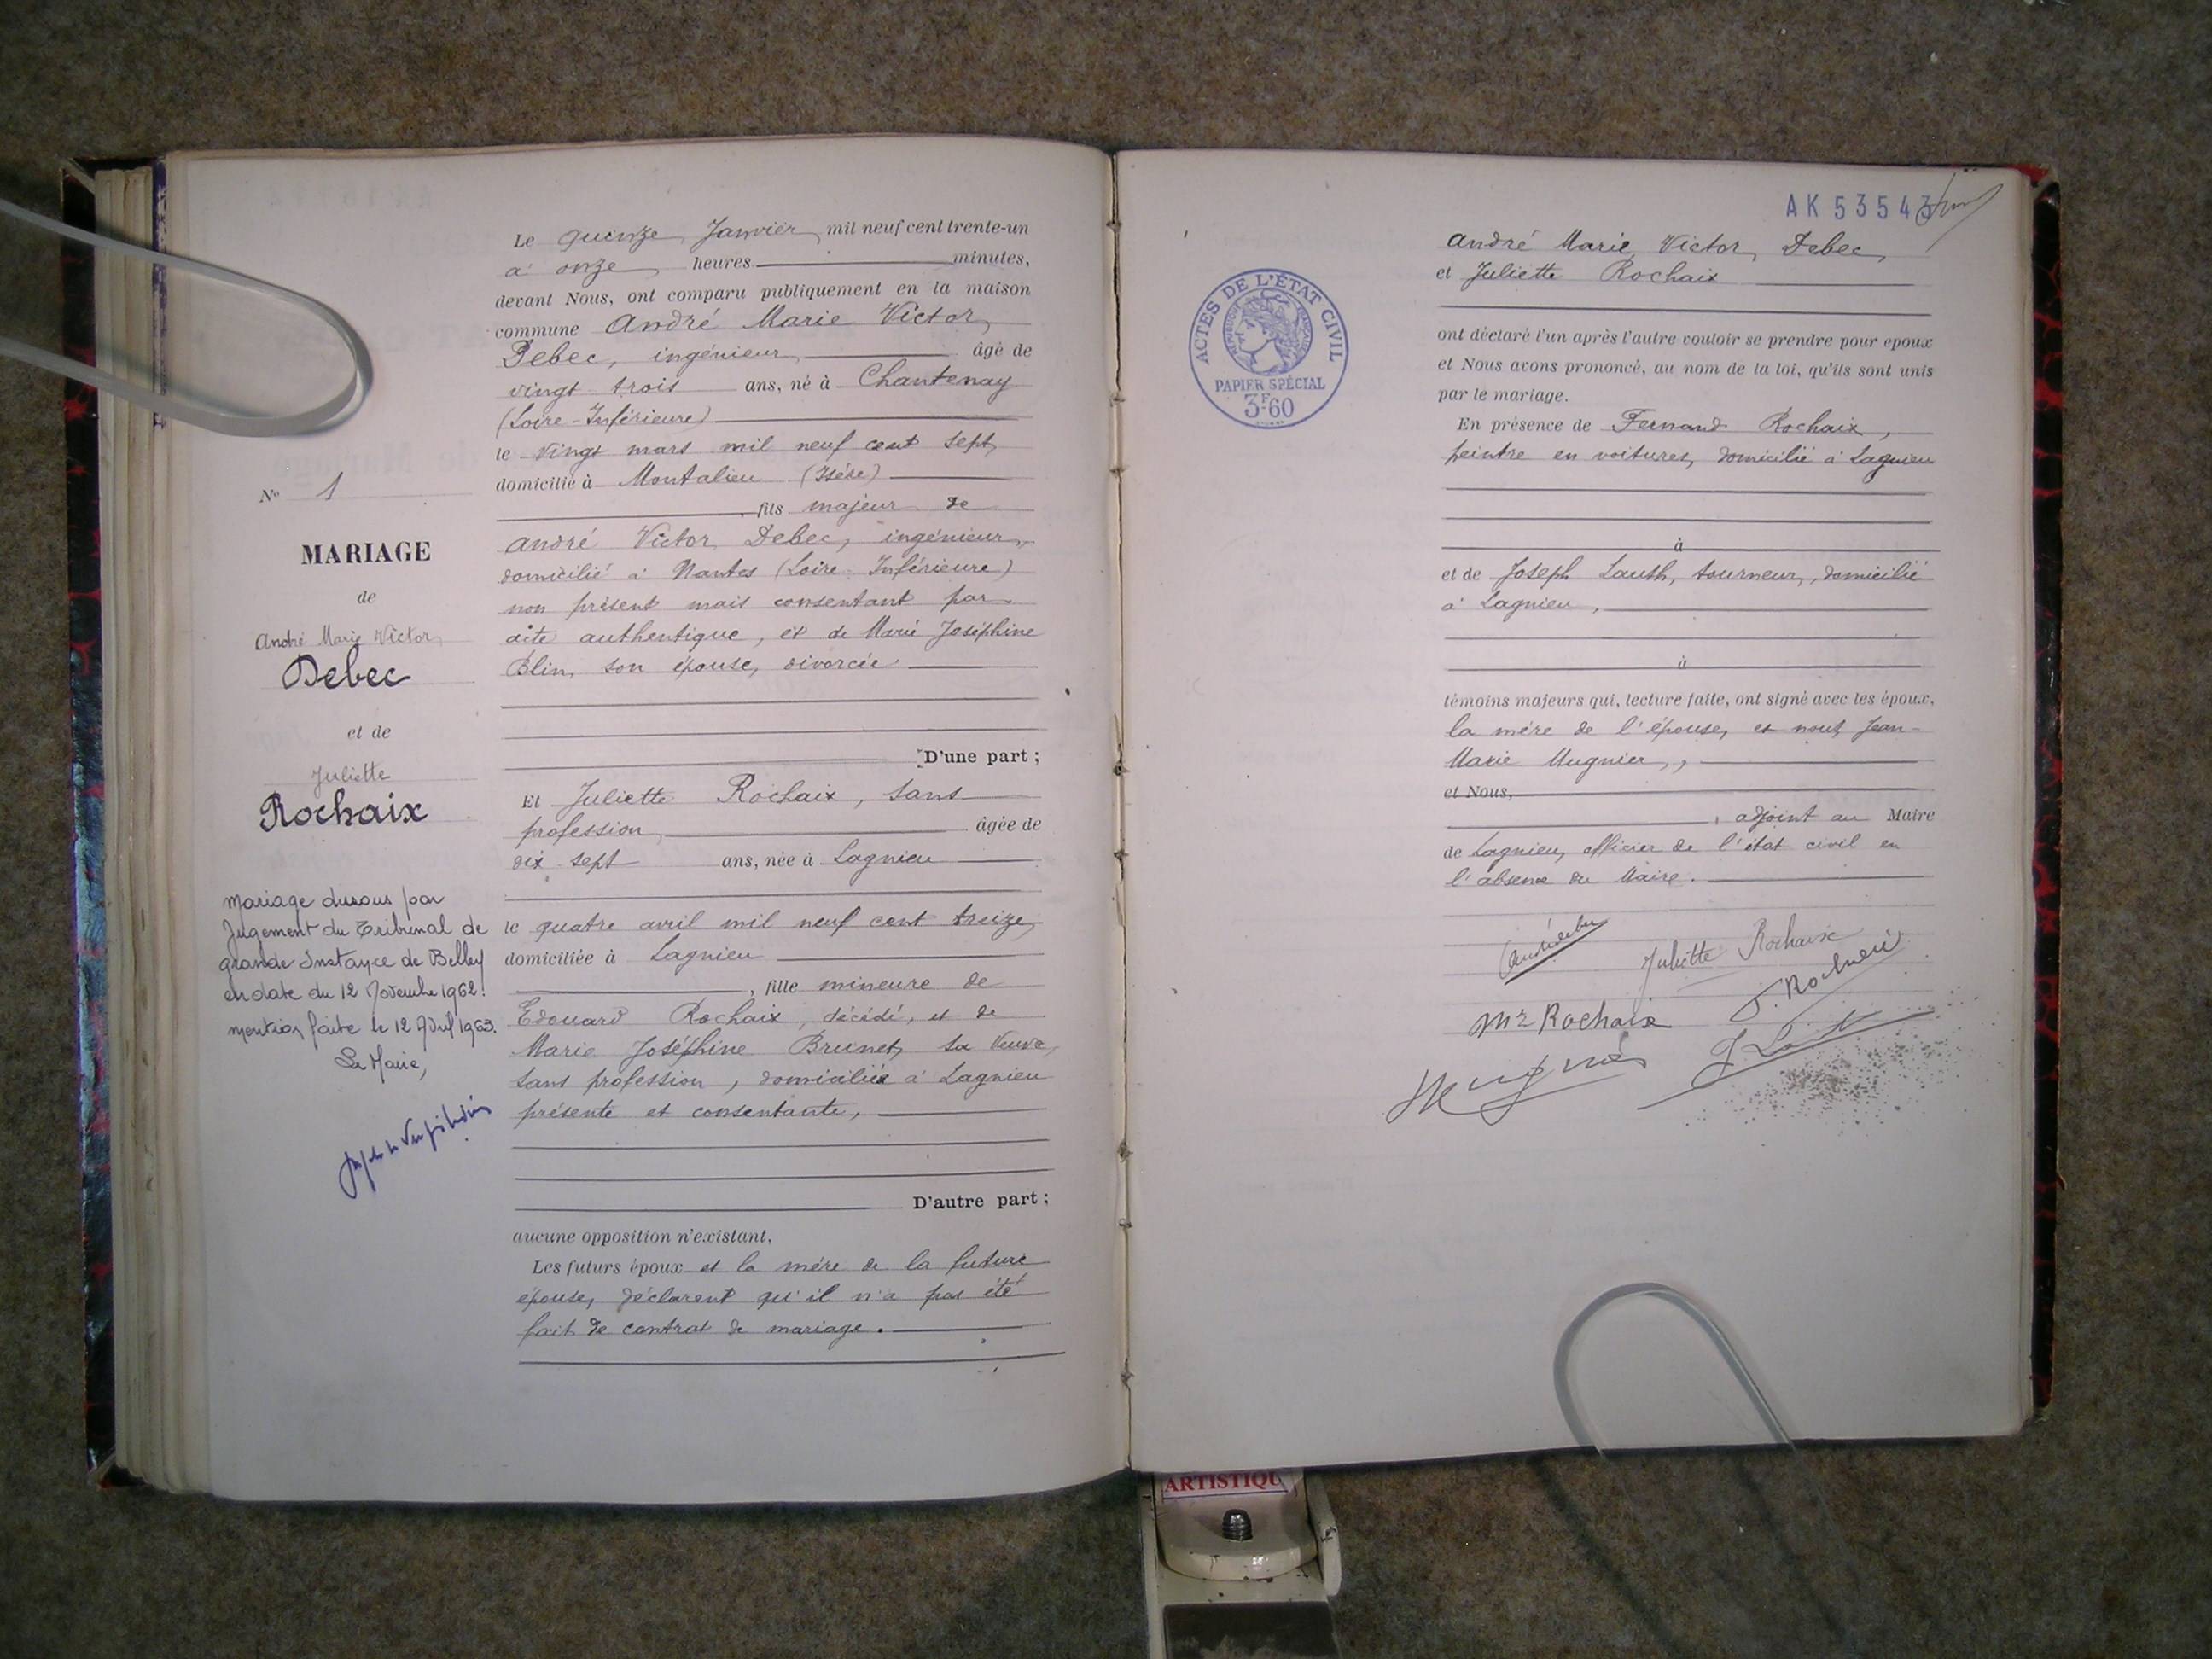 Le quinze Janvier mil neuf cent trente-un
à onze heures minutes,
devant Nous, ont comparu publiquement en la maison
commune André Marie Victor
Debec, ingénieur, âgé de
vingt trois ans, né à Chantenay
(Loire-Inférieure)
le vingt mars mil neuf cent sept,
domicilié à Montalieu (Isère)
, fils majeur de
André Victor Debec, ingénieur,
domicilié à Nantes (Loire-Inférieure)
non présent mais consentant par
acte authentique, et de Marie Joséphine
Blin, son épouse, divorcée
D'une part ;
Et Juliette Rochaix, sans
profession, âgée de
dix sept ans, née à Lagnieu
le quatre avril mil neuf cent treize,
domiciliée à Lagnieu
, fille mineure de
Edouard Rochaix, décédé, et de
Marie Joséphine Brunet, sa veuve,
sans profession, domiciliée à Lagnieu
présente et consentante,
D'autre part ;
aucune opposition n'existant,
Les futurs époux et la mère de la future
épouse, déclarent qu'il n'a pas été
fait de contrat de mariage.
No 1
MARIAGE
de
André Marie Victor
Debec
et de
Juliette
Rochaix
Mariage dissous par
Jugement du Tribunal de
grande Instance de Belley
en date du 12 Novembre 1962.
mention faite le 12 Avril 1963.
Le Maire,
AK 53543
ACTES DE L'ÉTAT CIVIL
RÉPUBLIQUE FRANÇAISE
PAPIER SPÉCIAL
3F60
André Marie Victor Debec,
et Juliette Rochaix
ont déclaré l'un après l'autre vouloir se prendre pour époux
et Nous avons prononcé, au nom de la loi, qu'ils sont unis
par le mariage.
En présence de Fernand Rochaix,
peintre en voitures, domicilié à Lagnieu
à
et de Joseph Lauth, tourneur, domicilié
à Lagnieu,
à
témoins majeurs qui, lecture faite, ont signé avec les époux,
la mère de l'épouse, et nous, Jean-
Marie Mugnier,,
et Nous,
, adjoint au Maire
de Lagnieu, officier de l'état civil en
l'absence du Maire.
Juliette Rochaix
Rochaix
Mugnier
ARTISTIQU